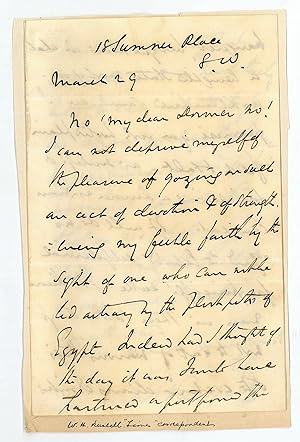 18 Sumner Place
S.W.
March 29
No! my dear Dormer no!
I can not deprive myself of
the pleasure of gazing on such
an act of devotion & of strength-
ening my feeble faith by the
sight of one who can not be
led astray by the flesh pots of
Egypt. Indeed had I thought of
the day it was I would have
hastened or postponed the
W. H. Russell Times correspondent